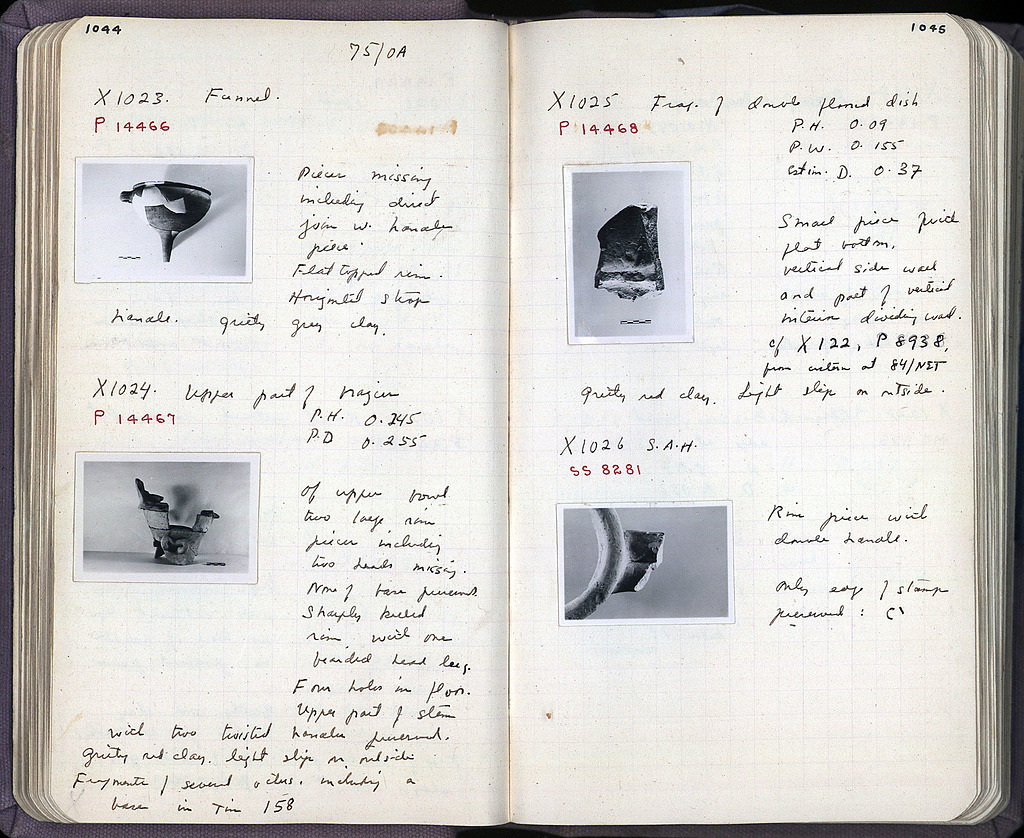 1044
75/OA
X1023. Funnel.
P 14466
Pieces missing
including direct
join w. handle
piece.
Flat topped rim.
Horizontal strap
handle. gritty grey clay.
X1024. Upper part of brazier
P 14467
P.H. 0.245
P.D 0.255
Of upper bowl
two large rim
pieces including
two heads missing.
None of base preserved.
Sharply keeled
rim with one
bearded head leg.
Four holes in floor.
Upper part of stem
with two twisted handles preserved.
Gritty red clay. light slip on outside
Fragments of several others, including a
base in Tin 158
1045
X1025 Frag. of double floored dish
P 14468
P.H. 0.09
P.W. 0.155
Estim. D. 0.37
Small piece with
flat bottom,
vertical side wall
and part of vertical
interior dividing wall.
cf X122, P 8938,
from cistern at 84/NET
Gritty red clay. Light slip on outside.
X1026 S.A.H.
SS 8281
Rim piece with
double handle.
Only edge of stamp
preserved : C